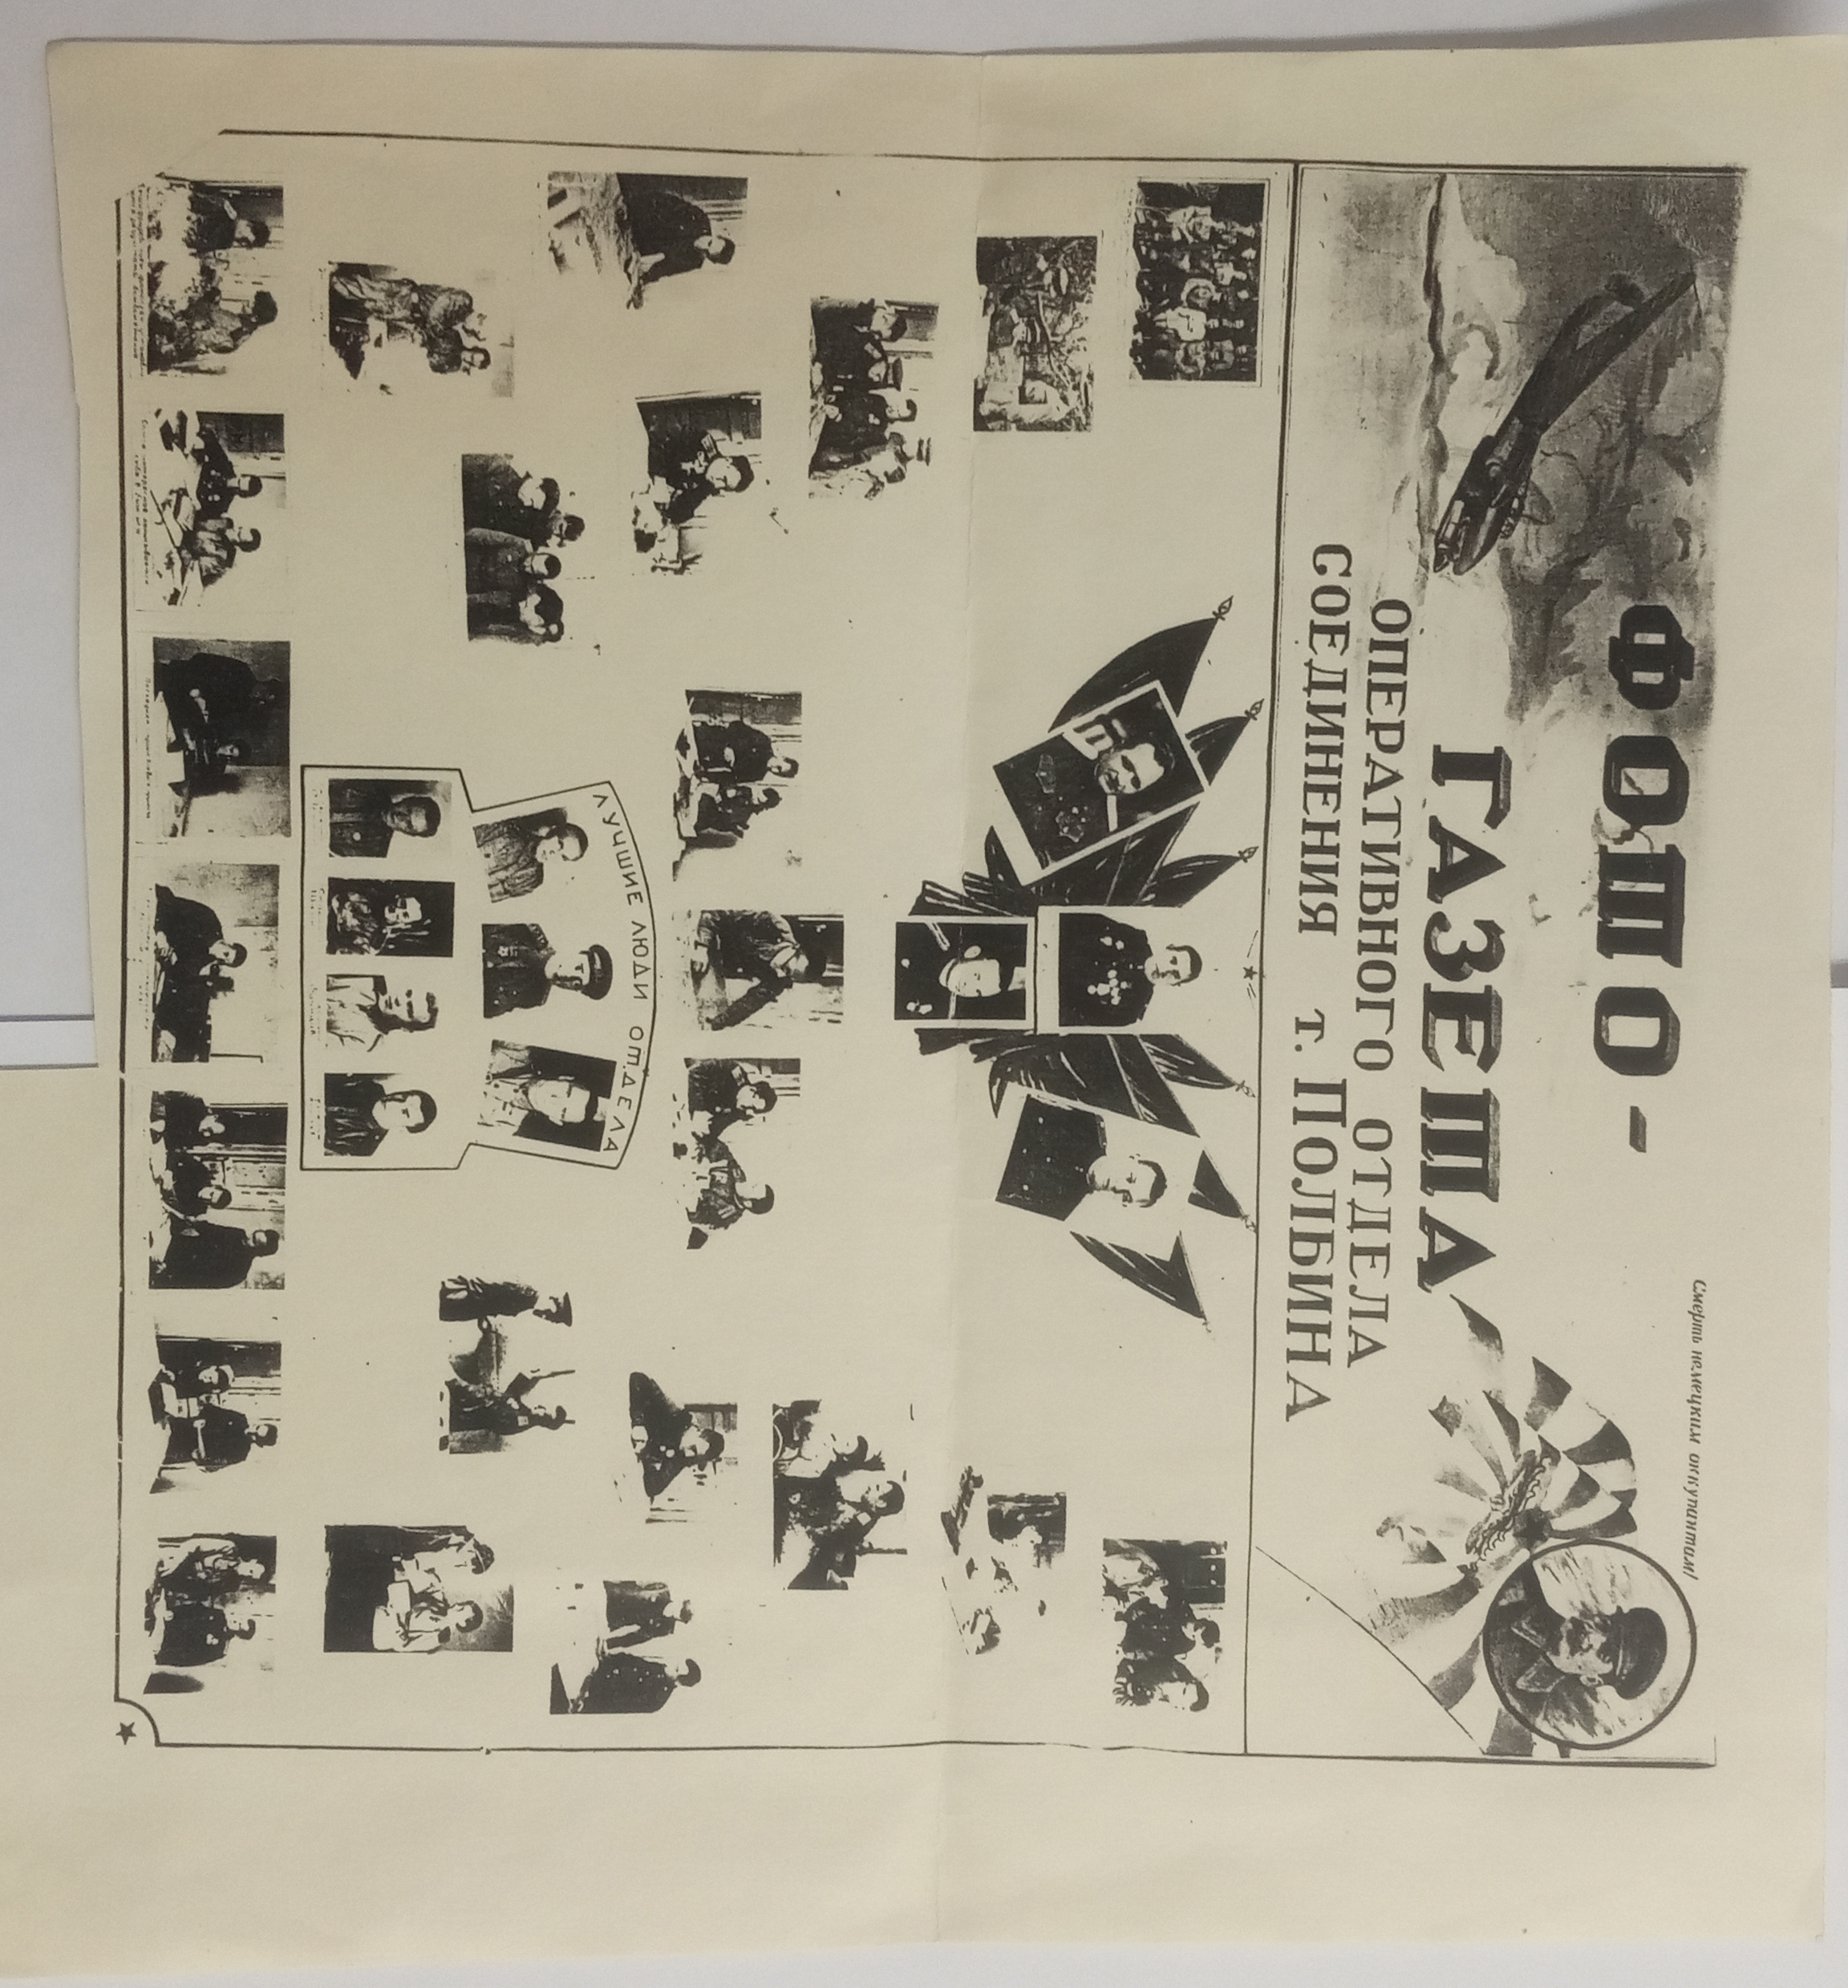 Смерть немецким оккупантам!
ФОТО-
ГАЗЕТА
ОПЕРАТИВНОГО ОТДЕЛА
СОЕДИНЕНИЯ т. ПОЛБИНА
ЛУЧШИЕ ЛЮДИ ОТДЕЛА